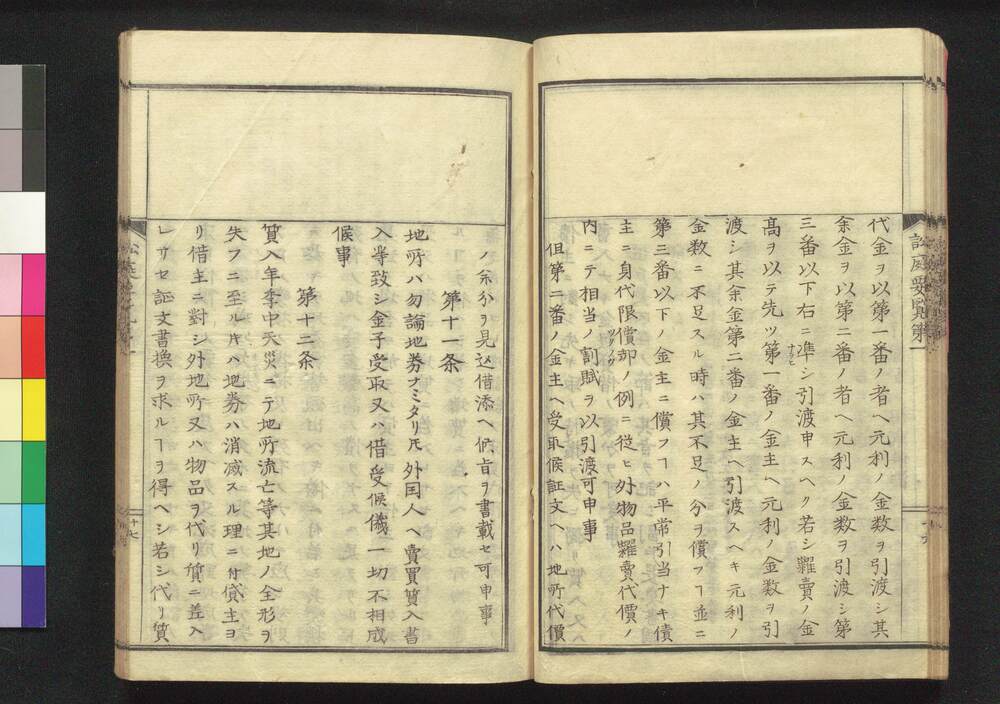 代金ヲ以第一番ノ者ヘ元利ノ金数ヲ引渡シ其
余金ヲ以第二番ノ者ヘ元利ノ金数ヲ引渡シ第
三番以下右ニ準シ引渡申スヘク若シ糶賣ノ金
高ヲ以テ先ツ第一番ノ金主ヘ元利ノ金数ヲ引
渡シ其余金第二番ノ金主ヘ引渡スヘキ元利ノ
金数ニ不足スル時ハ其不足ノ分ヲ償フヿ並ニ
第三番以下ノ金主ニ償フヿハ平常引当ナキ債
主ニ身代限償却ノ例ニ従ヒ外物品糶賣代價ノ
内ニテ相当ノ割賦ヲ以引渡可申事
但第二番ノ金主ヘ受取候証文ヘハ地所代價
ノ余分ヲ見込借添ヘ候旨ヲ書載セ可申事
第十一条
地所ハ勿論地券ノミタリ𪜈外国人ヘ賣買質入書
入等致シ金子受取又ハ借受候儀一切不相成
候事
第十二条
質入年季中天災ニテ地所流亡等其地ノ全形ヲ
失フニ至ル片ハ地券ハ消滅スル理ニ付貸主ヨ
リ借主ニ對シ外地所又ハ物品ヲ代リ質ニ差入
レサセ証文書換ヲ求ルヿヲ得ヘシ若シ代リ質
十七